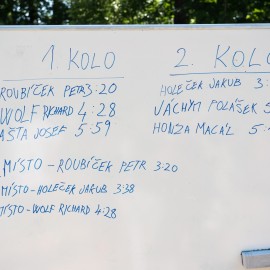 1. KOLO
ROUBÍČEK PETR 3:20
WOLF RICHARD 4:28
AŠTA JOSEF 5:59
2. KOLO
HOLEČEK JAKUB 3:
VÁCHYM POLÁŠEK 5
HONZA MACÁL 5:
MÍSTO - ROUBÍČEK PETR 3:20
MÍSTO - HOLEČEK JAKUB 3:38
MÍSTO - WOLF RICHARD 4:28